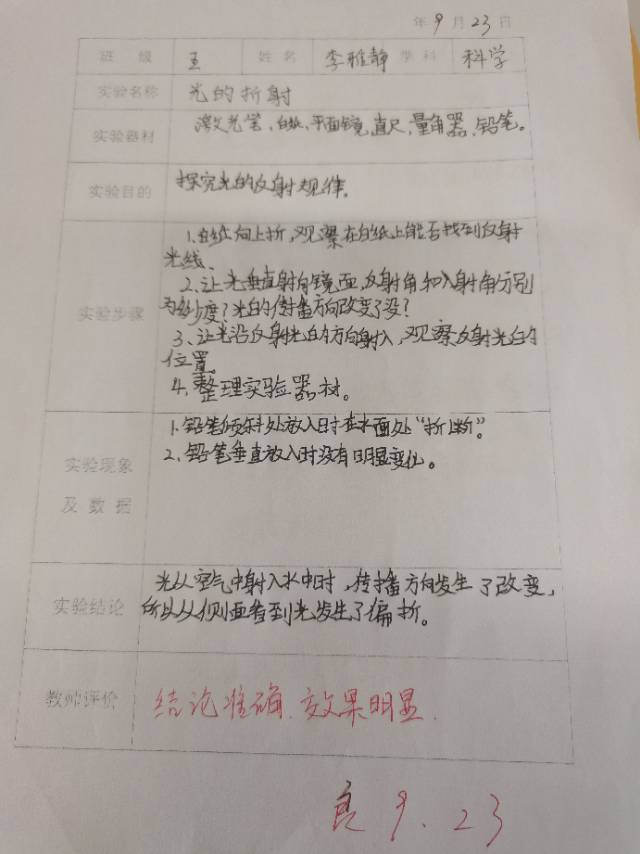 年9月23日
班 级 五 姓 名 李雅静 学 科 科学
实验名称 光的折射
实验器材 激光笔、白纸、平面镜、直尺、量角器、铅笔。
实验目的 探究光的反射规律。
1.白纸向上折,观察在白纸上能否找到反射
光线、
2.让光垂直射向镜面,反射角和入射角分别
为多少度?光的传播方向改变了没?
实验步骤
3、让光沿反射光的方向射入,观察反射光的
位置
4.整理实验器材。
1.铅笔倾斜处放入时在水面处“折断”。
2.铅笔垂直放入时没有明显变化。
实验现象
及 数 据
光从空气中射入水中时,传播方向发生了改变,
实验结论 所以从侧面看到光发生了偏折。
教师评价 结论准确、效果明显.
良 9.23